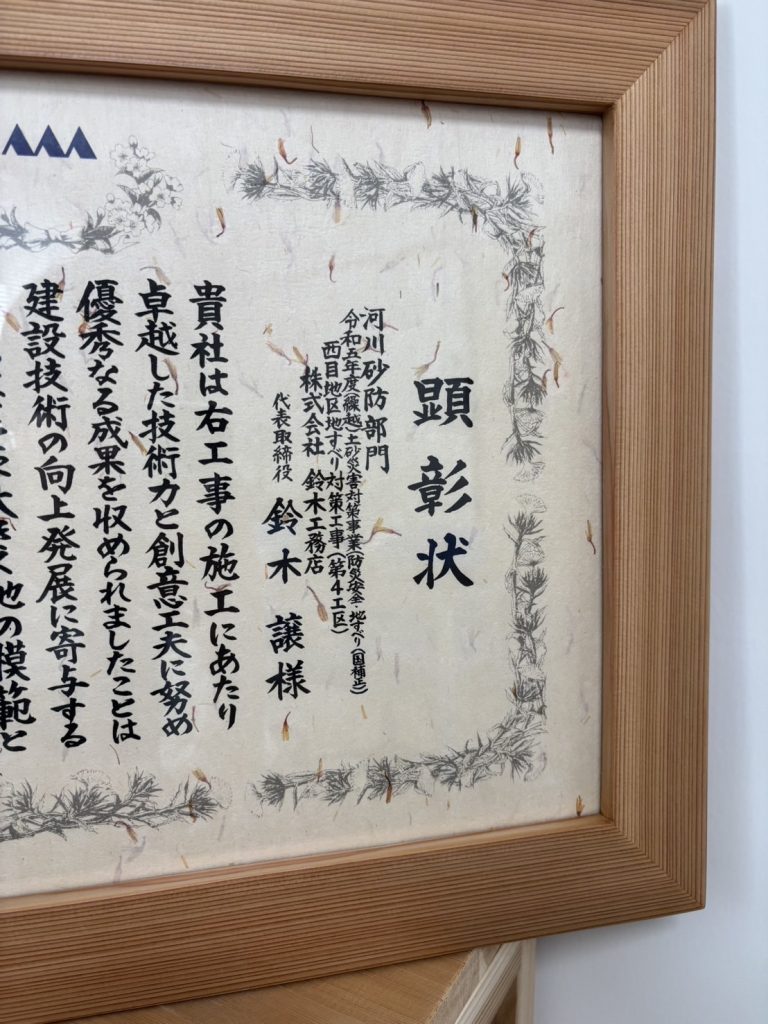 顕彰状
河川砂防部門
令和五年度(繰越)土砂災害対策事業(防災安全・地すべり(国補正)
西目地区地すべり対策工事(第4工区)
株式会社 鈴木工務店
代表取締役 鈴木 譲様
貴社は右工事の施工にあたり
卓越した技術力と創意工夫に努め
優秀なる成果を収められましたことは
建設技術の向上発展に寄与する
他の模範と